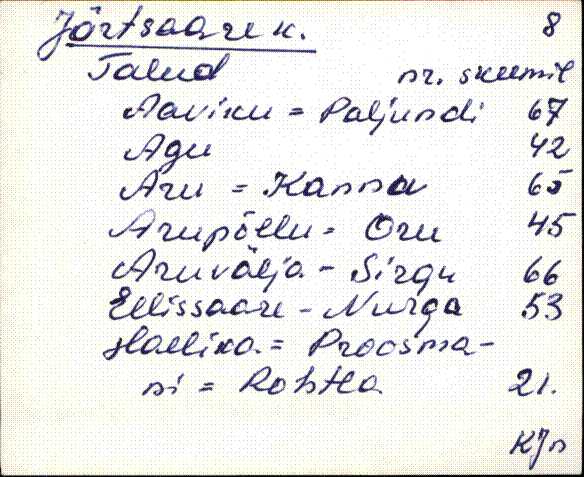 Jõrtsaare k. 8
Talud nr. skeemil
Aaviku = Paljundi 67
Agu 42
Aru = Kanna 65
Arupõllu - Oru 45
Aruvälja - Sirgu 66
Ellissaare - Nurga 53
Hallika = Proosma-
ni = Rohtla 21.
KJn